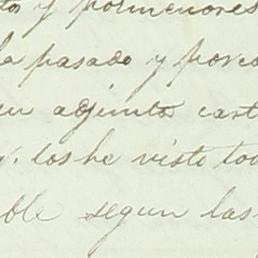 y pormenores
pasado y
adjunta cart
los he visto tod
ble segun las